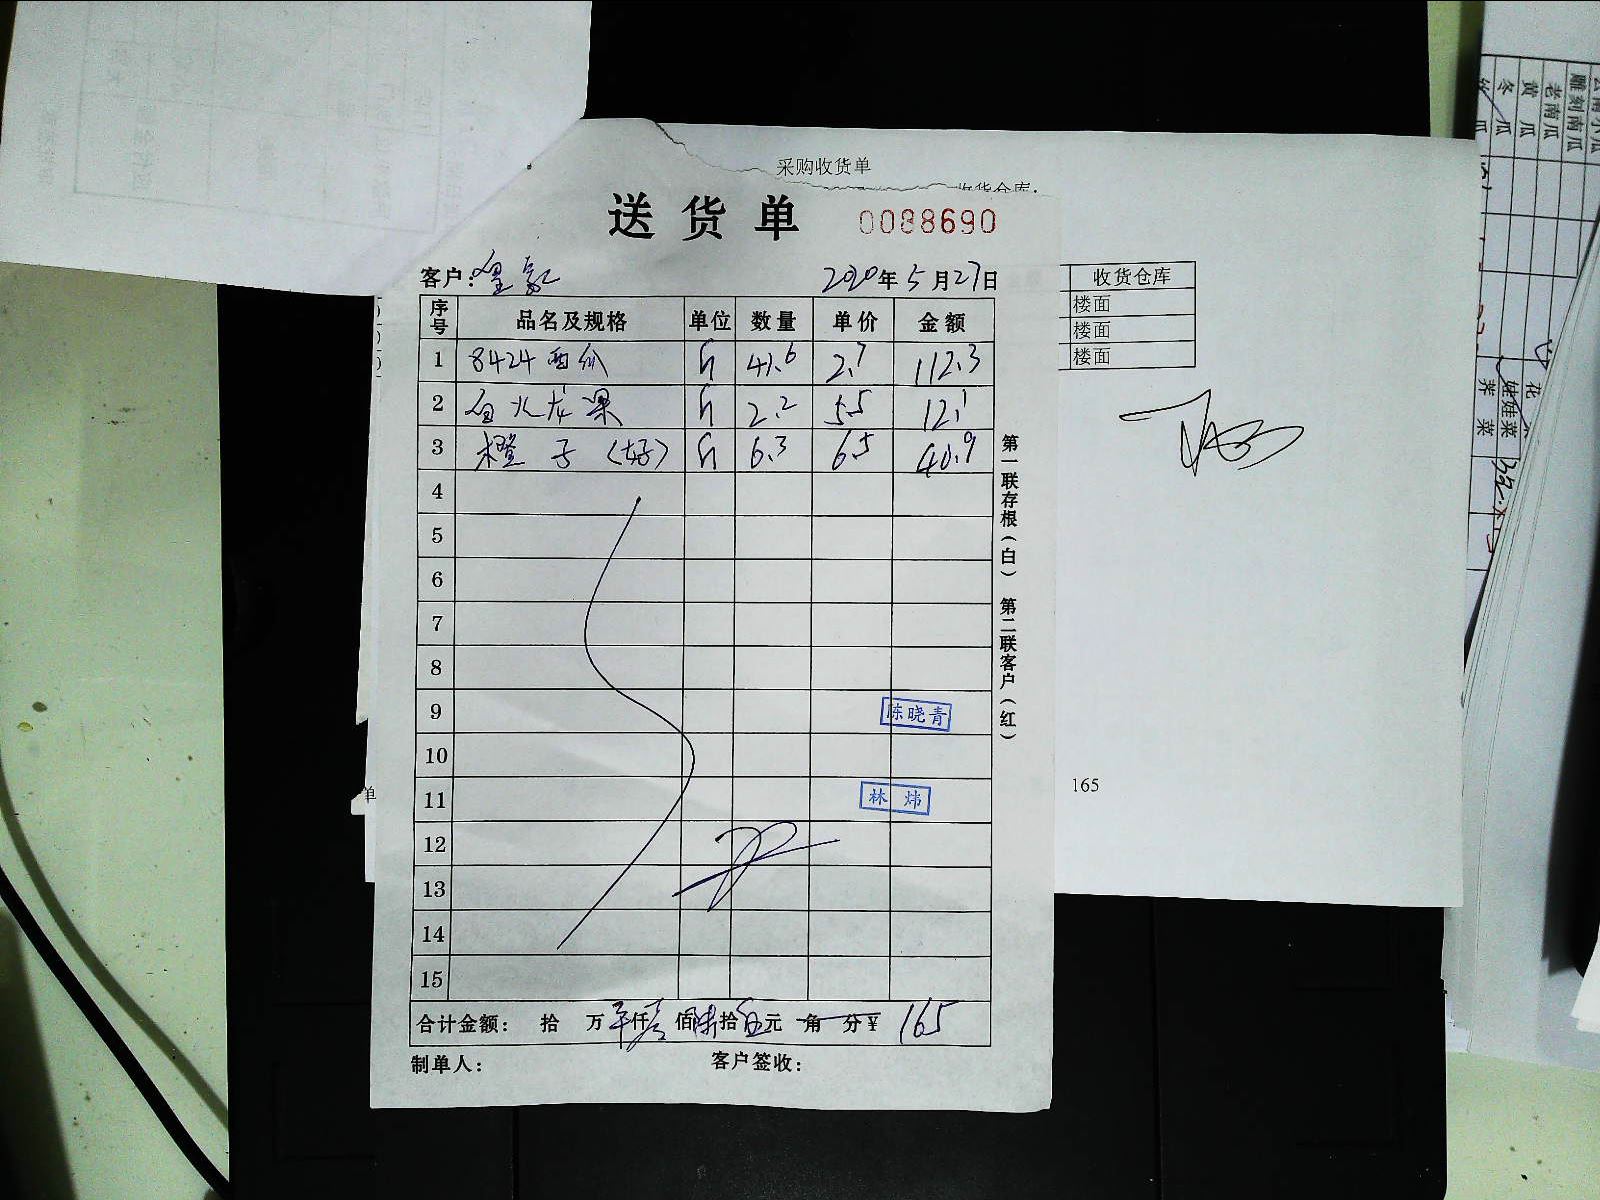 采购收货单
送货单 0088690
客户:皇家 2020年5月27日
序号 品名及规格 单位 数量 单价 金额
1 8424西瓜 斤 41.6 2.7 112.3
2 白火龙果 斤 2.2 5.5 12.1
3 橙子(好) 斤 6.3 6.5 40.9
4
5
6
7
8
9
10
11
12
13
14
15
陈晓青
林炜
合计金额: 拾 万 仟壹佰陆拾伍元 角 分¥ 165
制单人: 客户签收:
第一联存根(白) 第二联客户(红)
收货仓库
楼面
楼面
楼面
165
单
雕刻南瓜
老南瓜
黄瓜
冬瓜
花
娃娃菜
荠菜